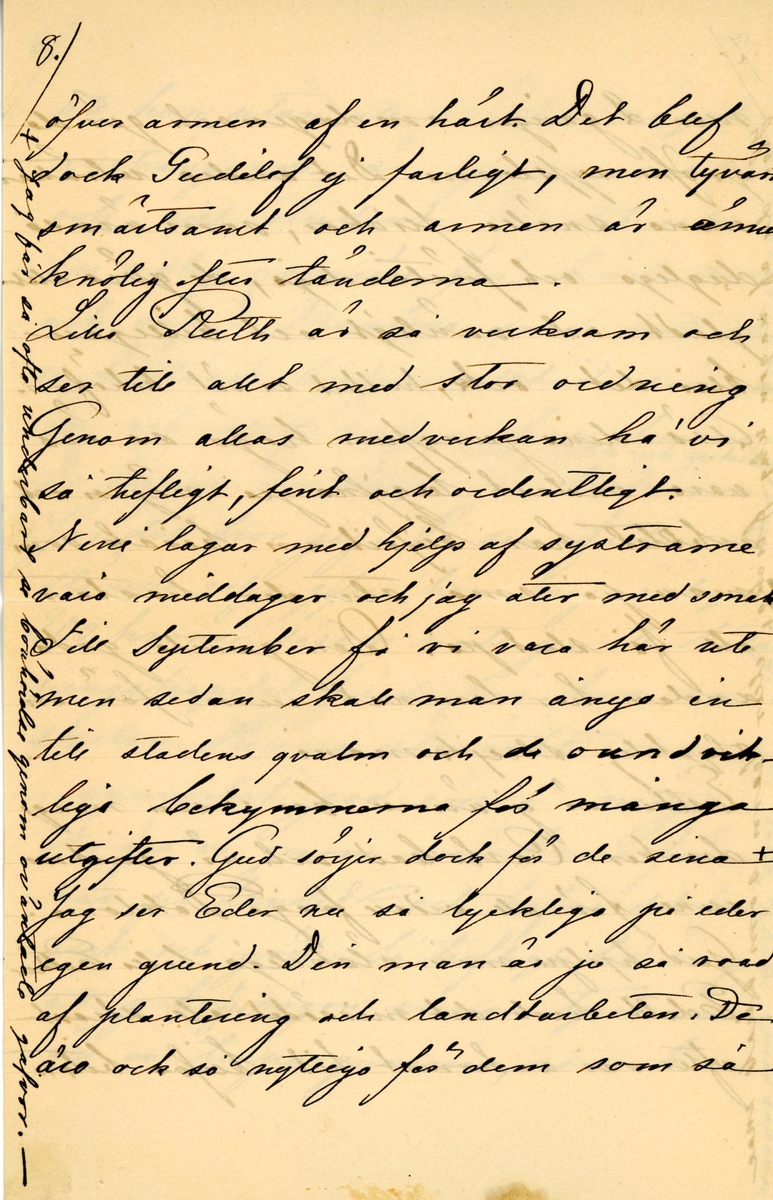 8.)
öfver armen af en häst. Det blef
dock Gudilof ej farligt, men tyvärr
smärtsamt och armen är ännu
knölig efter tänderna.
Lilla Ruth är så verksam och
ser till allt med stor ordning
Genom allas medverkan ha' vi
så trefligt, fint och ordentligt.
Nini lagar med hjelp af systrarne
våra middagar och jag äter med smak
Till September få vi vara här ute
men sedan skall man ånyo in
till stadens qvalm och de oundvik-
liga bekymmerna för många
utgifter. Gud sörjer dock för de sina +
Jag ser Eder nu så lyckliga på eder
egen grund. Din man är ju så road
af plantering och landtarbeten. De
äro ock så nyttiga för dem som så
+ Jag får så ofta underbart se bönhörelse genom oväntade gåfvor. —